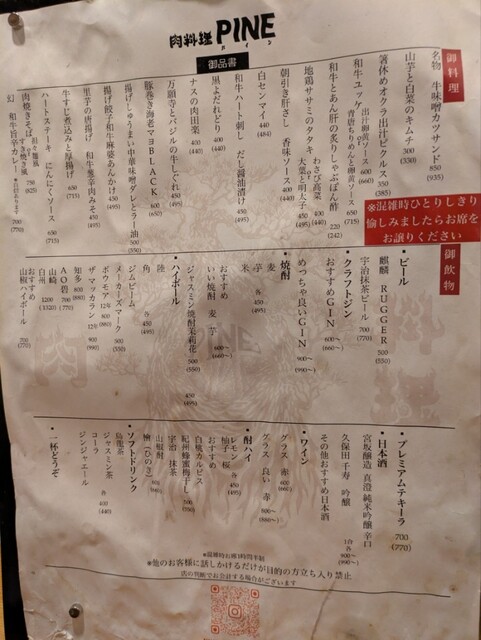 肉料理 PINE
パイン
御品書
御料理
名物 牛味噌カツサンド 850 (935)
山芋と白菜のキムチ 300 (330)
箸休めオクラ出汁ピクルス 350 (385)
和牛ユッケ 出汁卵黄ソース 600 (660)
or
青唐ちりめんと卵黄ソース 650 (715)
和牛とあん肝の炙りしゃぶポン酢 220 (242)
地鶏ササミのタタキ わさび高菜 400 (440)
or
大葉と明太子 450 (495)
朝引き肝さし 香味ソース 400 (440)
白センマイ 440 (484)
和牛ハート刺し だし醤油漬け 450 (495)
黒よだれどり 400 (440)
ナスの肉田楽 400 (440)
万願寺とバジルの牛しぐれ 450 (495)
豚巻き海老マヨBLACK 600 (660)
揚げしゅうまい中華味噌ダレとラー油 500 (550)
揚げ餃子和牛麻婆あんかけ 450 (495)
里芋の唐揚げ 和牛葱辛肉みそ 450 (495)
牛すじ煮込みと厚揚げ 650 (715)
ハートステーキ にんにくソース 650 (715)
肉焼きそば 担々麺風
or
すき焼き風 750 (825)
幻 和牛旨辛カレー 700 (770)
※混雑時ひとりしきり
愉しみましたらお席を
お譲りください
御飲物
・ビール
麒麟 RUGGER 500 (550)
宇治抹茶ビール 700 (770)
・クラフトジン
おすすめGIN 600〜 (660〜)
めっちゃ良いGIN 900〜 (990〜)
・焼酎
麦
芋 各450 (495)
米
おすすめ
いい焼酎 麦 芋 600 (660〜)
ジャスミン焼酎茉莉花 500 (550)
・ハイボール 450 (495)
陸
角 各450 (495)
ジムビーム
メーカーズマーク 500 (550)
ボウモア12年 800 (880)
ザ マッカラン12年 900 (990)
知多 800 (880)
AO碧 700 (770)
山崎
白州 1200 (1320)
おすすめ
山椒ハイボール 700 (770)
・プレミアムテキーラ 700 (770)
・日本酒
宮坂醸造 真澄 純米吟醸 辛口
久保田 千寿 吟醸 1合 各900〜 (990〜)
その他おすすめ日本酒
・ワイン
グラス 赤 600 (660)
グラス 良い 赤 800〜 (880〜)
・酎ハイ
レモン 各450 (495)
柚子 桜
おすすめ
白桃カルピス
紀州蜂蜜梅干し 500 (550)
宇治 抹茶
山椒酎
檜 (ひのき)
・ソフトドリンク
烏龍茶
ジャスミン茶 各400 (440)
コーラ
ジンジャエール
・一杯どうぞ
※混雑時お席1時間半制
※他のお客様に話しかけるだけが目的の方立ち入り禁止
店の判断でお会計する場合がございます